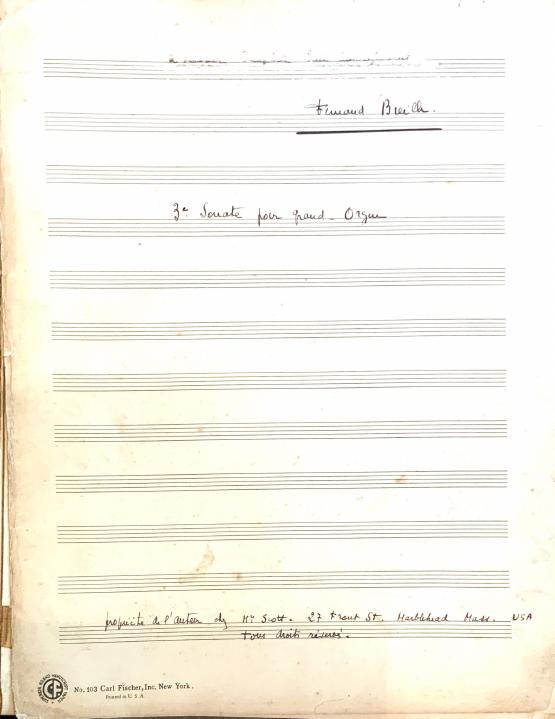 Fernand Breilh.
3e Sonate pour grand-Orgue
propriété de l'auteur chez Mr Scott. 27 Front St. Marblehead Mass. USA
tous droits réservés.
No. 103 Carl Fischer, Inc. New York.
Printed in U. S. A.